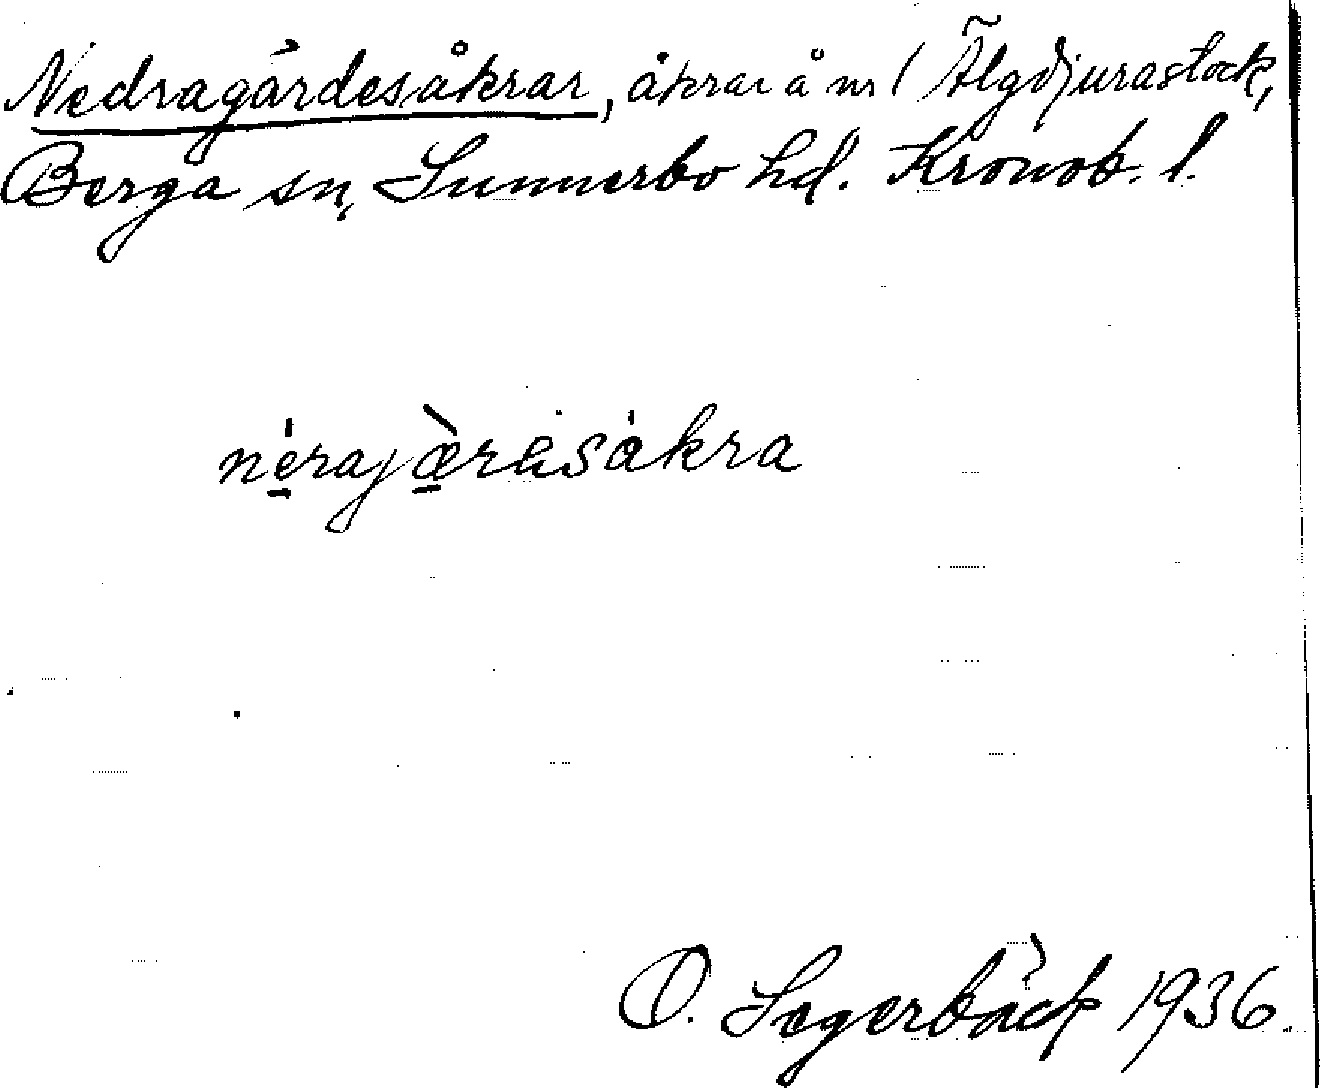 Nedragårdesåkrar, åkrar å nr 1 Älgdjurastock,
Berga sn, Sunnerbo hd. Kronob. l.
nérajæ̀rasåkra
O. Segerbäck 1936.